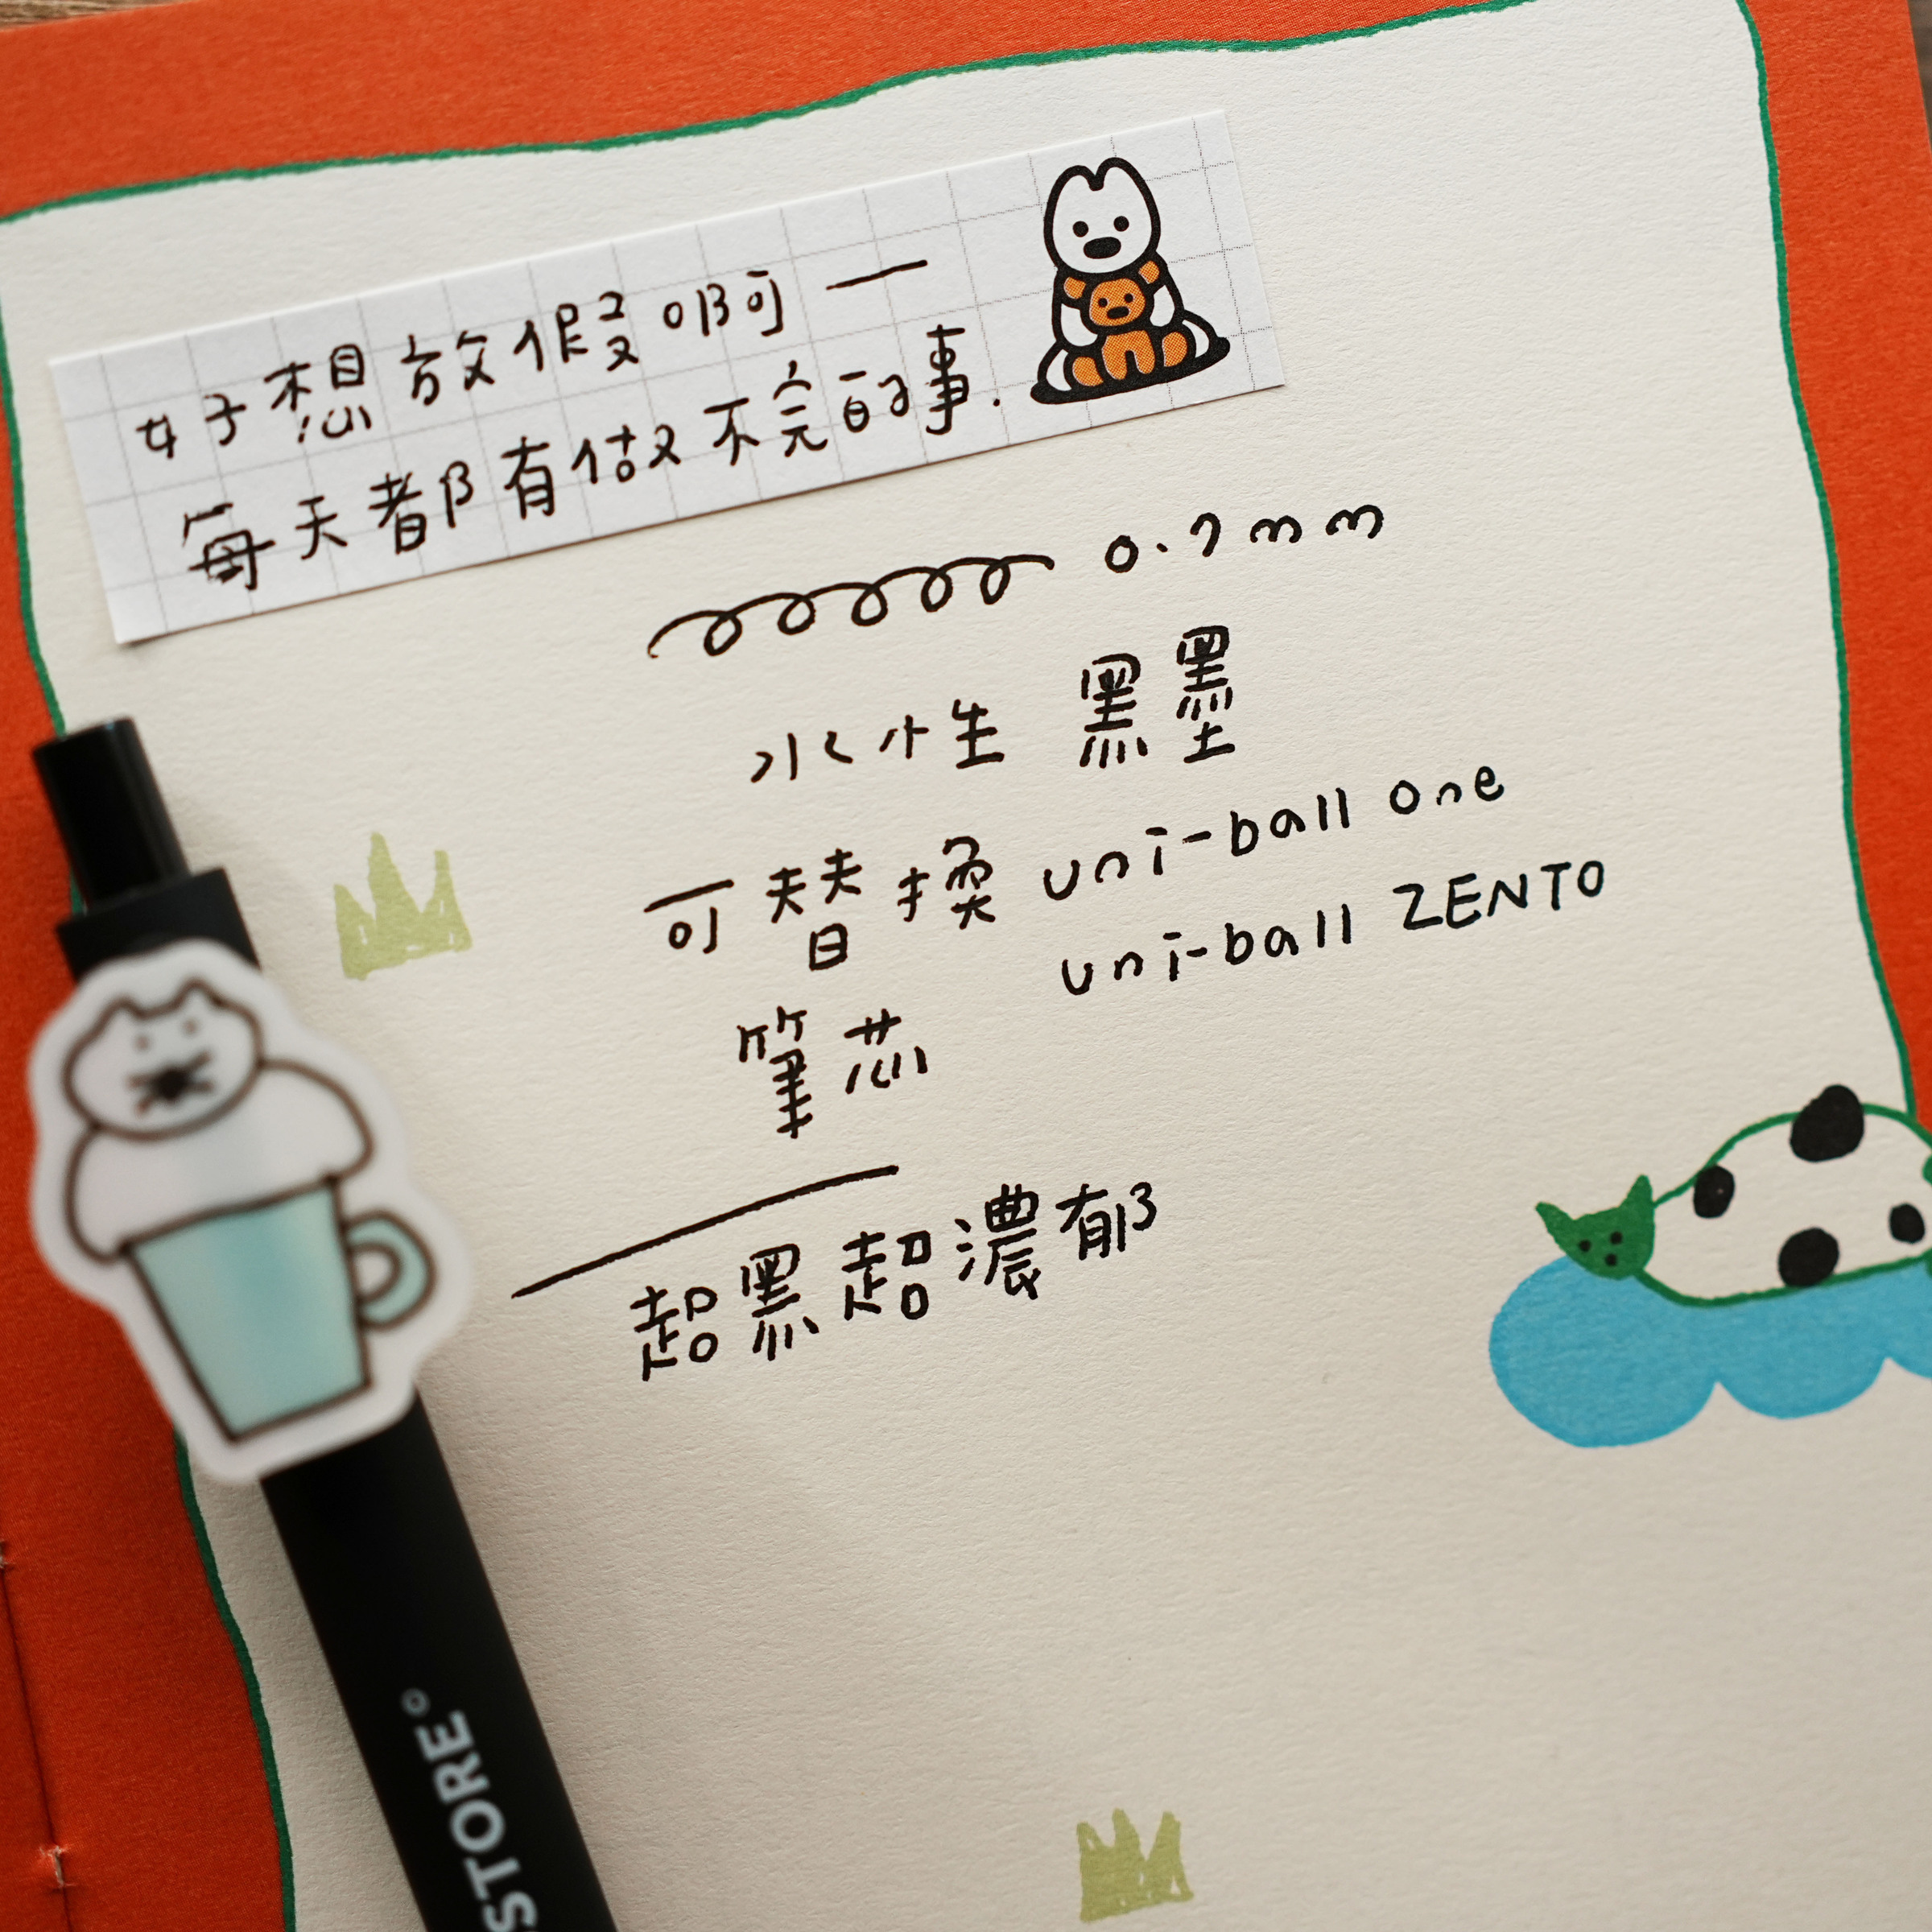 好想放假啊一
每天都有做不完的事.
0.7mm
水性 黑墨
可替換 uni-ball one
uni-ball ZENTO
筆芯
超黑超濃郁
STORE©